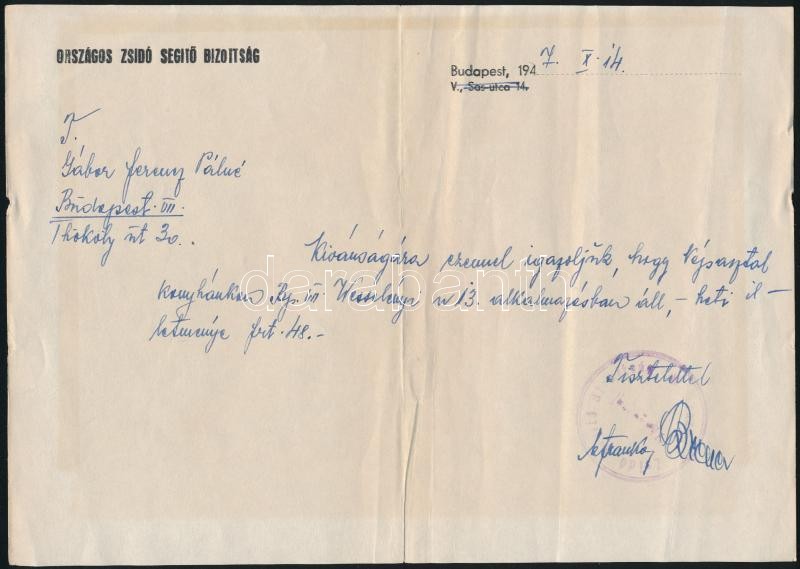 ORSZÁGOS ZSIDÓ SEGITŐ BIZOTTSÁG
Budapest, 194 7. X. 14.
V., Sas-utca 14.
T.
Gábor Ferenc Pálné
Budapest. VII.
Thököly út 30..
Kívánságára ezennel igazoljuk, hogy Népasztal
konyhánkon Bp. VII. Wesselényi u 13. alkalmazásban áll, - heti il-
letménye frt. 48.-
Tisztelettel
darabanth.com